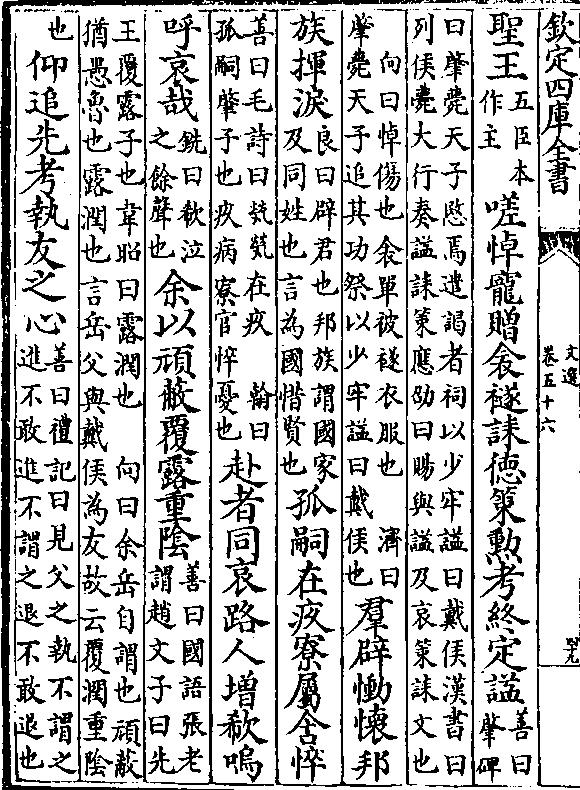 欽定四庫全書
文選
卷五十六
聖王
五臣本
作主
嗟悼寵贈衾襚誄德策勲考終定諡
善曰
肇碑
曰肇薨天子愍焉遣謁者祠以少牢諡曰戴侯漢書曰
列侯薨大行奏諡誄策應劭曰賜與諡及哀策誄文也
向曰悼傷也衾單被襚衣服也 濟曰
肇薨天子追其功祭以少牢諡曰戴侯也
羣辟慟懷邦
族揮淚
良曰辟君也邦族謂國家
及同姓也言為國惜賢也
孤嗣在疚寮屬含悴
善曰毛詩曰煢煢在疚 翰曰
孤嗣肇子也疚病寮官悴憂也
赴者同哀路人增欷嗚
呼哀哉
銑曰欷泣
之餘聲也
余以頑蔽覆露重陰
善曰國語張老
謂趙文子曰先
王覆露子也韋昭曰露潤也 向曰余岳自謂也頑蔽
猶愚魯也露潤也言岳父與戴侯為友故云覆潤重陰
也
仰追先考執友之心
善曰禮記曰見父之執不謂之
進不敢進不謂之退不敢退也